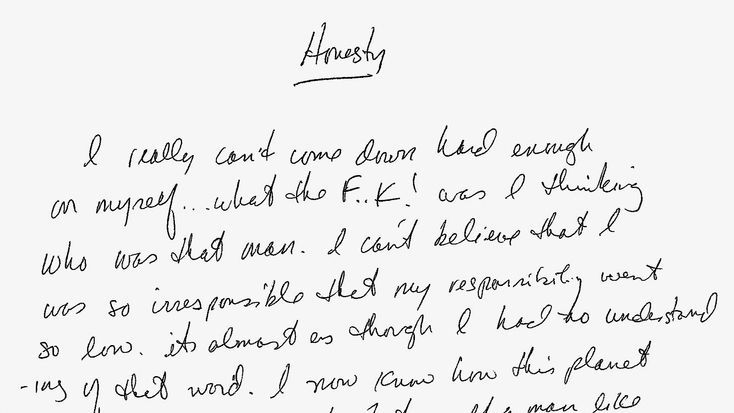 Honesty
I really can't come down hard enough
on myself...what the F..K! was I thinking
who was that man. I can't believe that I
was so irresponsible that my responsibility went
so low. its almost as though I had no understand
-ing of that word. I now know how this planet
a man like